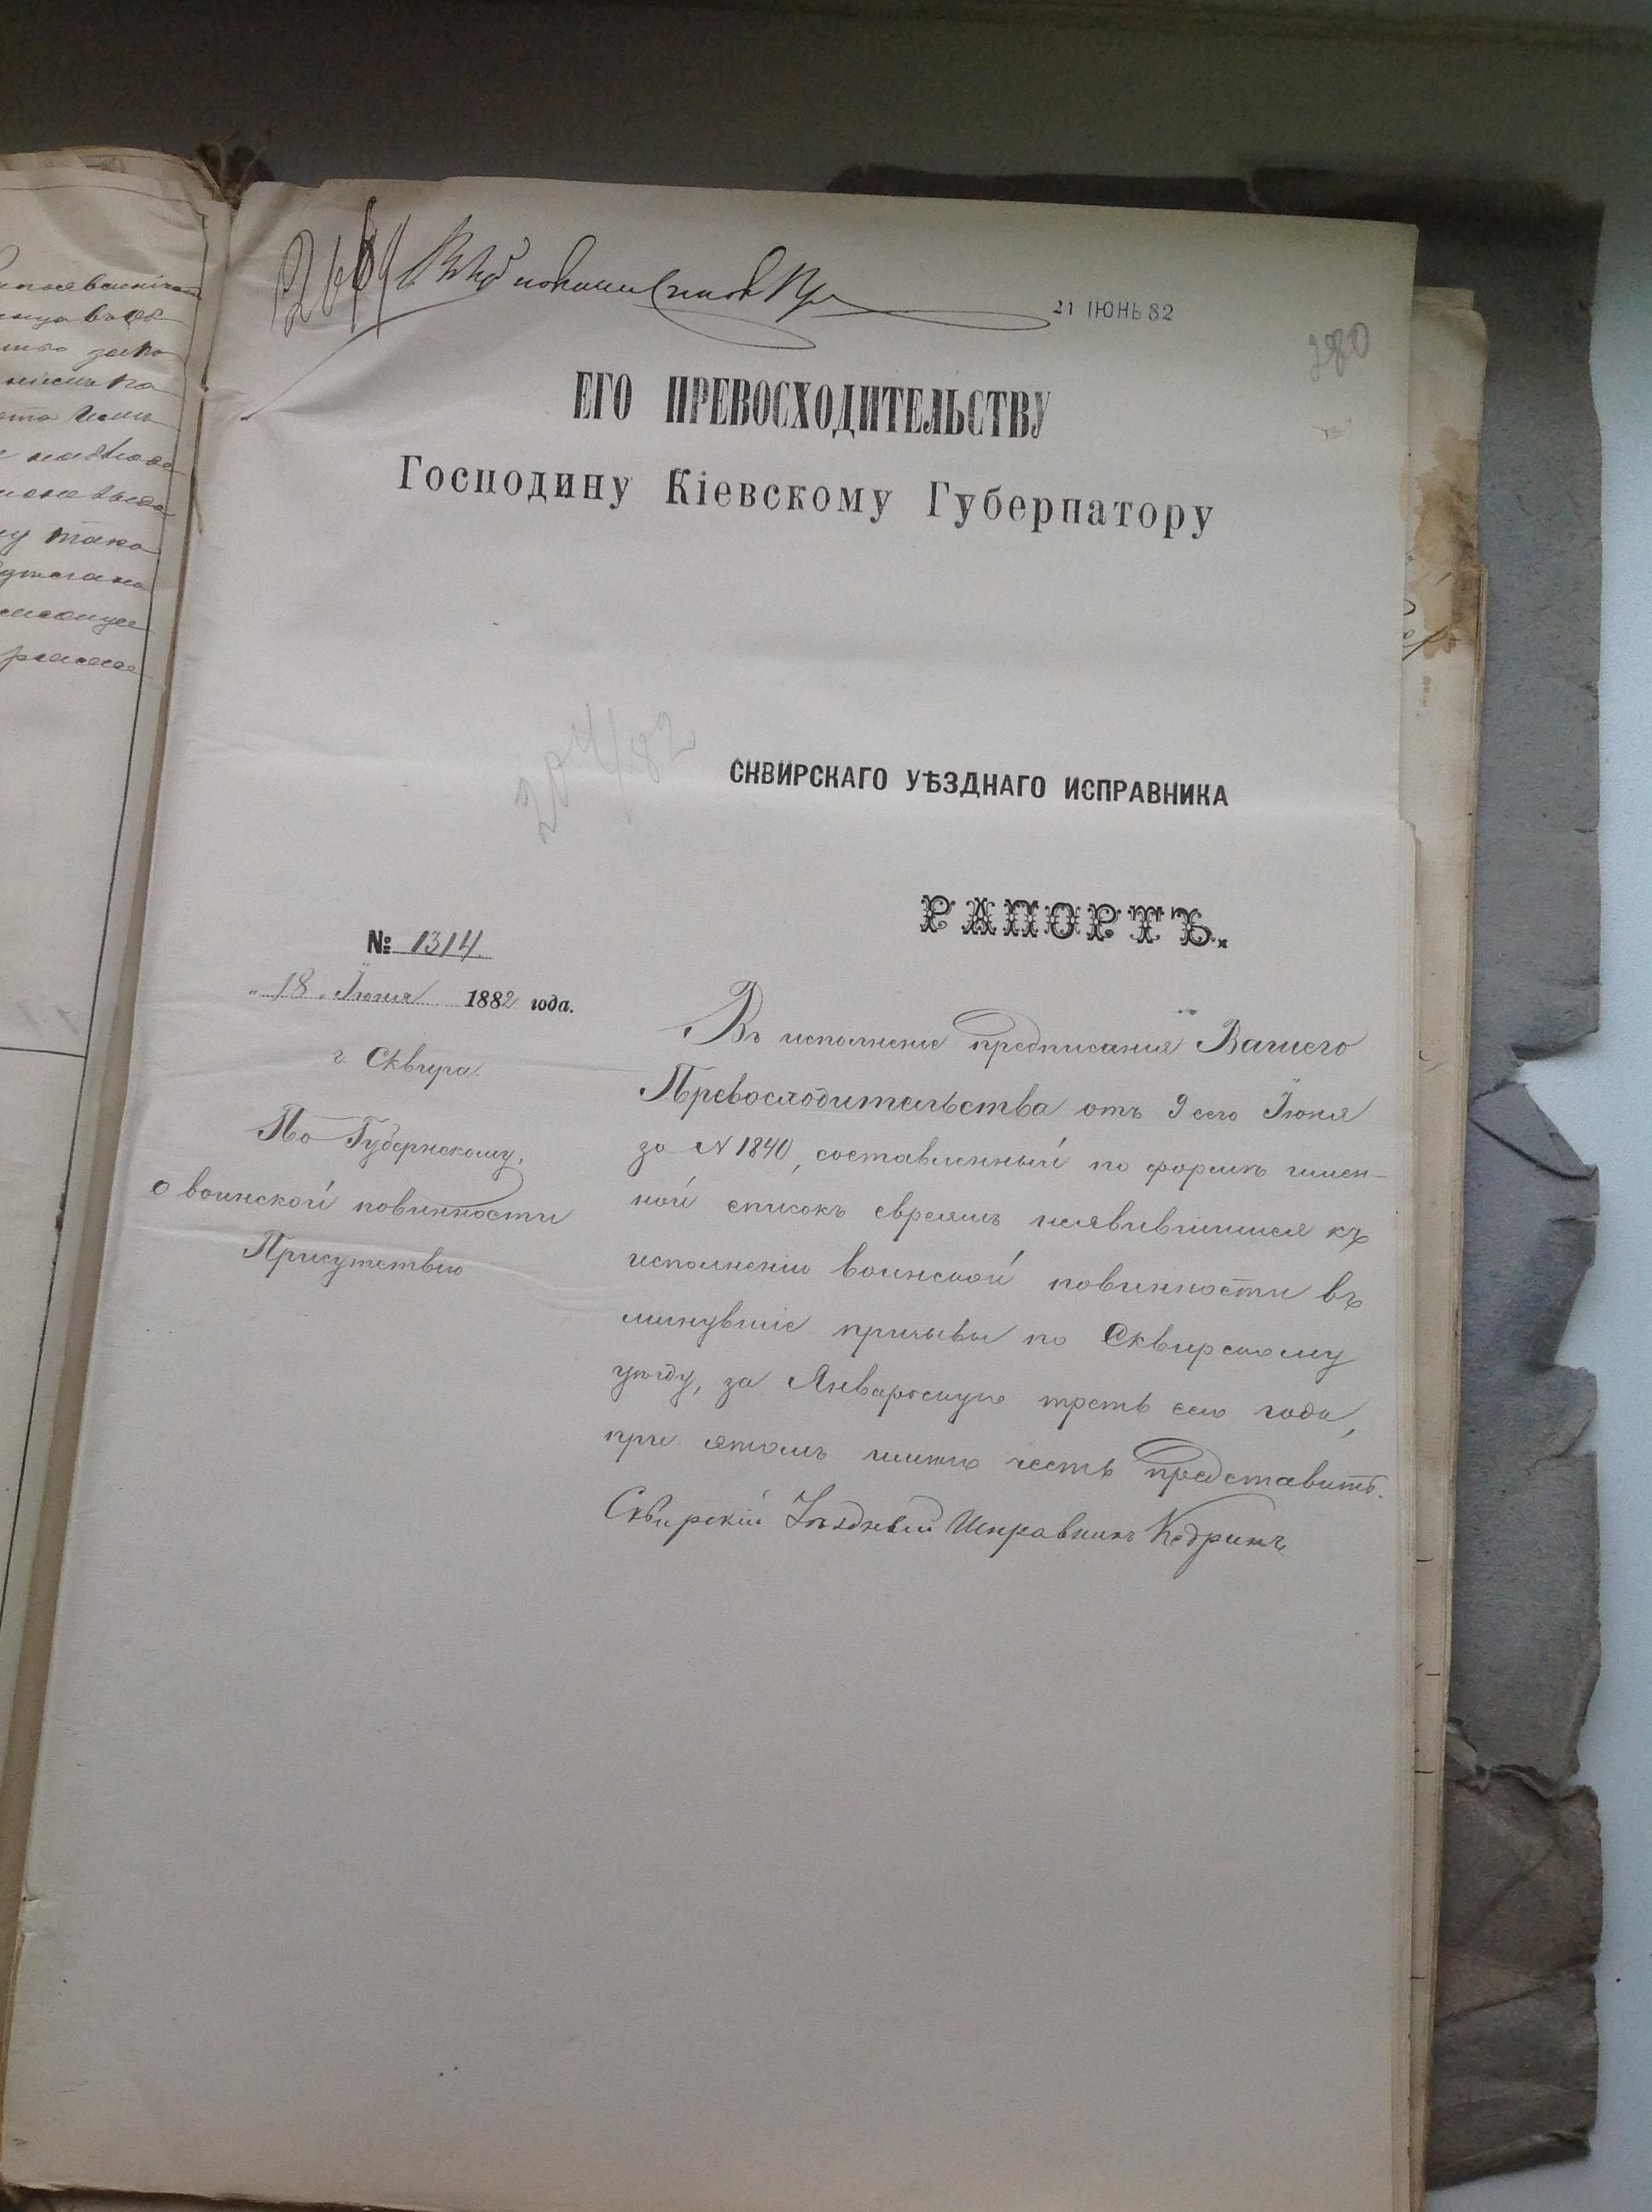 21 ІЮНЬ 82
280
ЕГО ПРЕВОСХОДИТЕЛЬСТВУ
Господину Кіевскому Губернатору
СКВИРСКАГО УѢЗДНАГО ИСПРАВНИКА
РАПОРТЪ.
№ 1314.
„18„ Іюня 1882 года.
г. Сквира.
По Губернскому,
о воинской повинности
Присутствію
Въ исполненіе предписанія Вашего
Превосходительства отъ 9 сего Іюня
за N 1840, составленный по формѣ имен-
ной списокъ евреямъ неявившимся къ
исполненію воинской повинности въ
минувшіе призывы по Сквирскому
уѣзду, за Январьскую треть сего года,
при этомъ имѣю честь представить.
Сквирскій Уѣздный Исправникъ Кедринъ